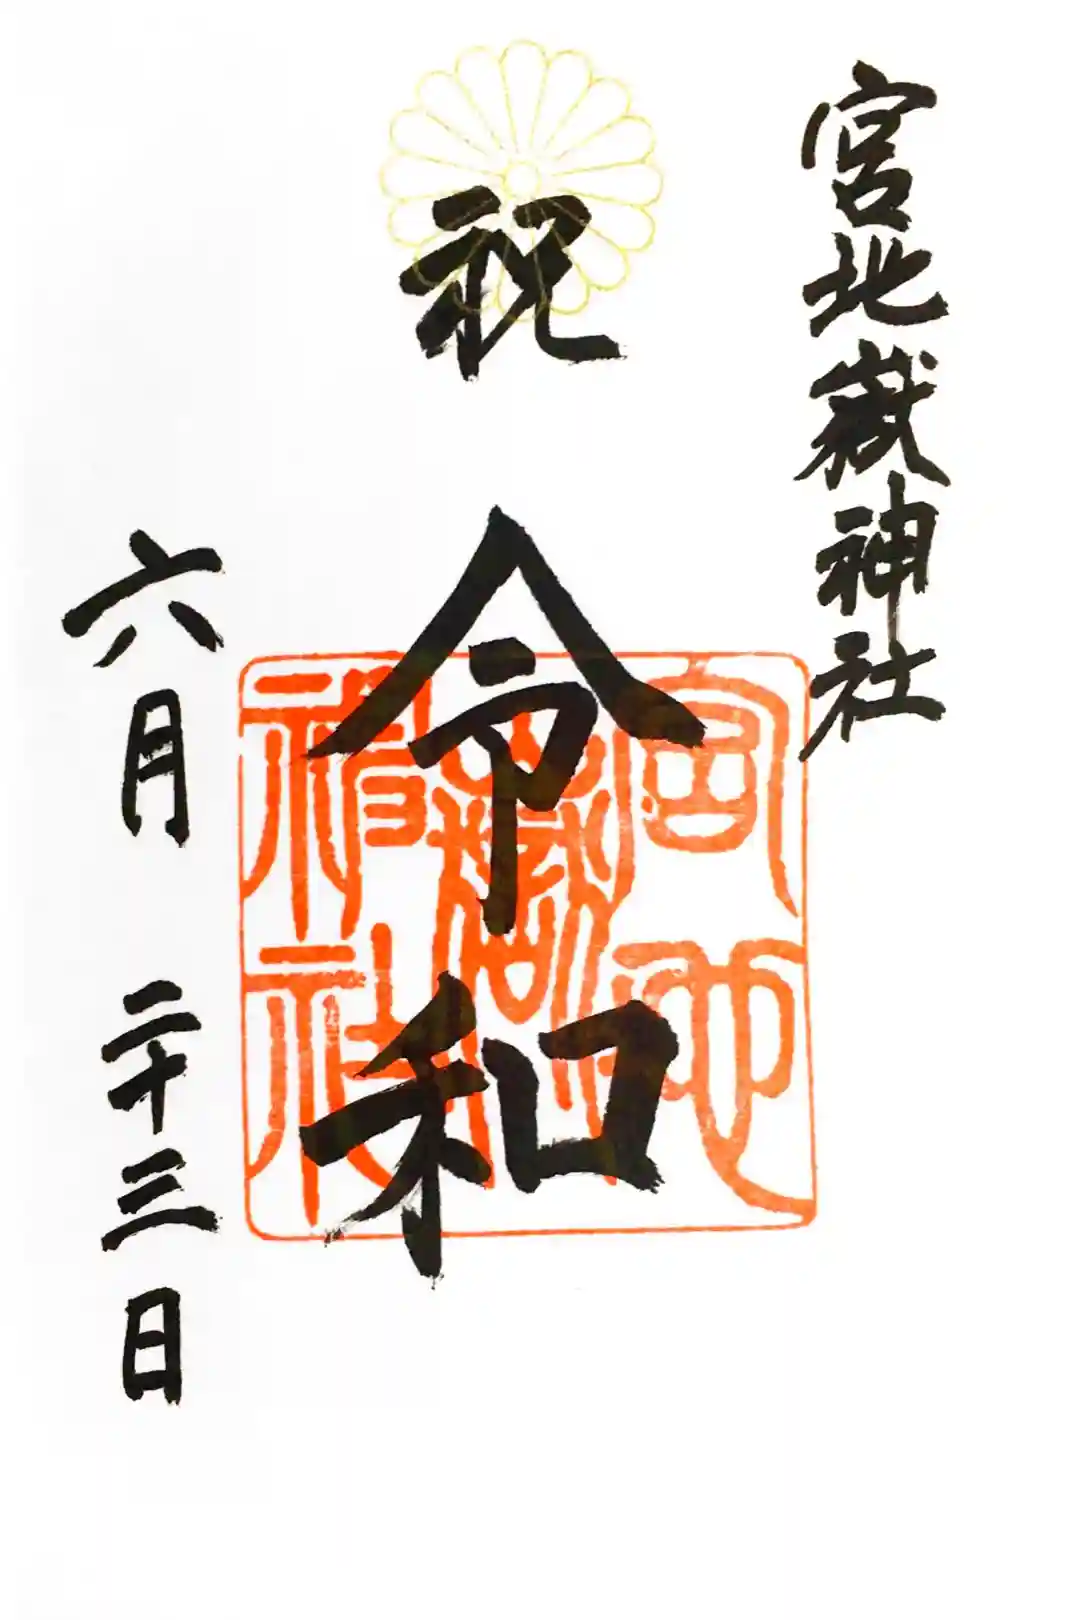 宮地嶽神社
祝
令和
宮地
嶽
神社
六月 二十三日